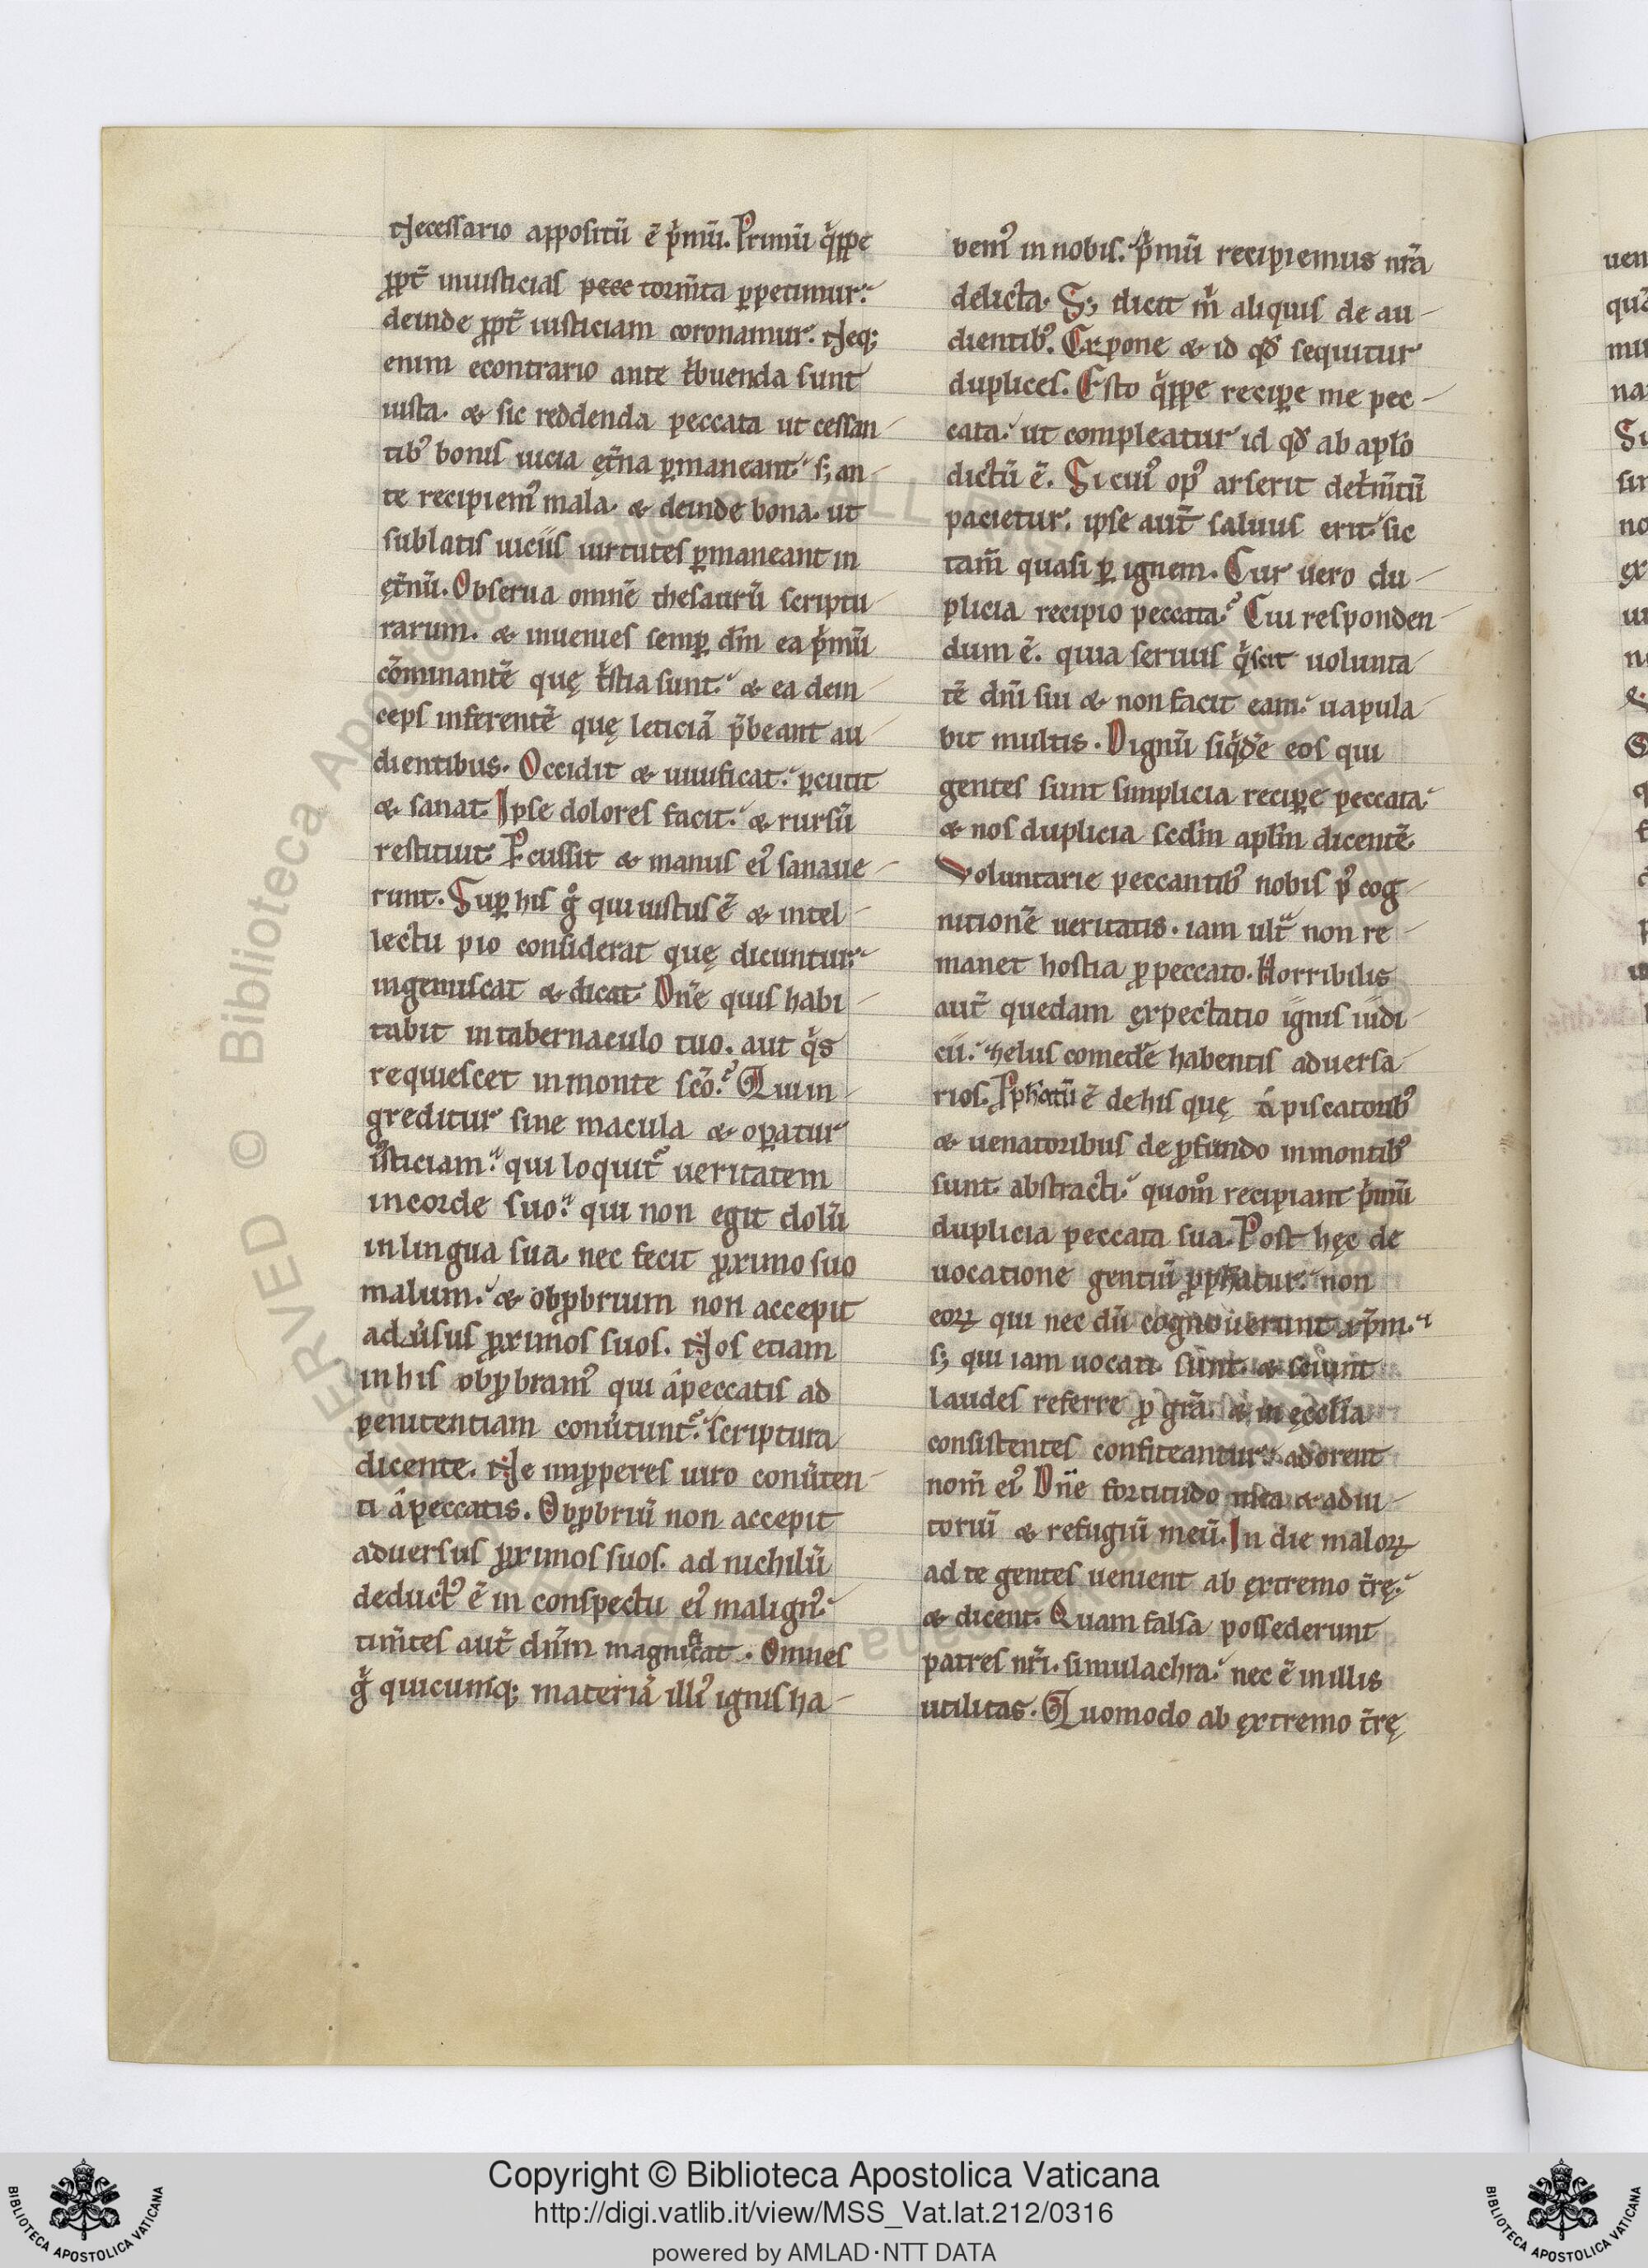 Necessario appositũ ẽ p̓mũ. Primũ q̓ppe
ꝓpt̃ iniusticias pece torm̃ta ꝑpetimur.
deinde ꝓpt̃ iusticiam coronamur. Neq;
enim econtrario ante t̓buenda sunt
iusta. & sic reddenda peccata ut cessan
tib᾽ bonis uicia ęt̃na ꝑmaneant. s; an
te recipiem᾽ mala. & deinde bona. ut
sublatis uiciis uirtutes ꝑmaneant in
ęt̃nũ. Obserua omnẽ thesaurũ scriptu
rarum. & inuenies semꝑ dm̃ ea p̓mũ
cõminantẽ quę t̓stia sunt. & ea dein
ceps inferentẽ quę leticiã p̃beant au
dientibus. Occidit & uiuificat. ꝑcutit
& sanat. Ipse dolores facit. & rursũ
restituit. Ꝑcussit & manus ei᾽ sanaue
runt. Suꝑ his g̊ qui iustus ẽ & intel
lectu pio considerat quę dicuntur.
ingemiscat & dicat. Dñe quis habi
tabit in tabernaculo tuo. aut q̓s
requiescet in monte scõ? Qui in
greditur sine macula & oꝑatur
iusticiam. qui loquit᷑ ueritatem
in corde suo. qui non egit dolũ
in lingua sua. nec fecit ꝓximo suo
malum. & obꝓbrium non accepit
adũsus ꝓximos suos. Nos etiam
in his obꝓbram᾽ qui a peccatis ad
penitentiam conũtunt᷑. scriptura
dicente. Ne imꝓperes uiro conũten
ti a peccatis. Obꝓbriũ non accepit
aduersus ꝓximos suos. ad nichilũ
deduct᾽ ẽ in conspectu ei᾽ malign᾽.
tim̃tes aut̃ dñm magnificat. Omnes
g̊ quicumq; materiã illi᾽ ignis ha
bem᾽ in nobis. p̓mũ recipiemus nr̃a
delicta. S; dicit m̓ aliquis de au
dientib᾽. Expone & id qđ sequitur
duplices. Esto q̓ppe recipe me pec
cata. ut compleatur id qđ ab aplõ
dictũ ẽ. Si cui᾽ op᾽ arserit det̓m̃tũ
pacietur. ipse aut̃ saluus erit. sic
tam̃ quasi ꝑ ignem. Cur uero du
plicia recipio peccata? Cui responden
dum ẽ. quia seruus q̓ scit uolunta
tẽ dñi sui & non facit eam. uapula
bit multis. Dignũ siq̓dẽ eos qui
gentes sunt simplicia reciꝑe peccata.
& nos duplicia scđm aplm̃ dicentẽ.
Voluntarie peccantib᾽ nobis p᾽ cog
nitionẽ ueritatis. iam ult̃ non re
manet hostia ꝓ peccato. Horribilis
aut̃ quedam exꝑectatio ignis iudi
cii. zelus comedẽ habentis aduersa
rios. Ꝓphatũ ẽ de his quę a piscatorib᾽
& uenatoribus de ꝓfundo in montib᾽
sunt abstracti. quom̊ recipiant p̓mũ
duplicia peccata sua. Post hęc de
uocatione gentiũ ꝓphatur. non
eoꝝ qui nec dũ cognouerunt xp̃m.
s; qui iam uocati sunt. & sciunt
laudes referre ꝓ gr̃a. & in ęccl̃ia
consistentes confiteantur. adorent
nom̃ ei᾽. Dñe fortitudo mea & adiu
toriũ & refugiũ meũ. In die maloꝝ
ad te gentes uenient ab ęxtremo t̃rę.
& dicent. Quam falsa possederunt
patres nr̃i. simulachra. nec ẽ in illis
utilitas. Quomodo ab ęxtremo t̃rę
Copyright © Biblioteca Apostolica Vaticana
http://digi.vatlib.it/view/MSS_Vat.lat.212/0316
powered by AMLAD·NTT DATA
BIBLIOTECA APOSTOLICA VATICANA
BIBLIOTECA APOSTOLICA VATICANA